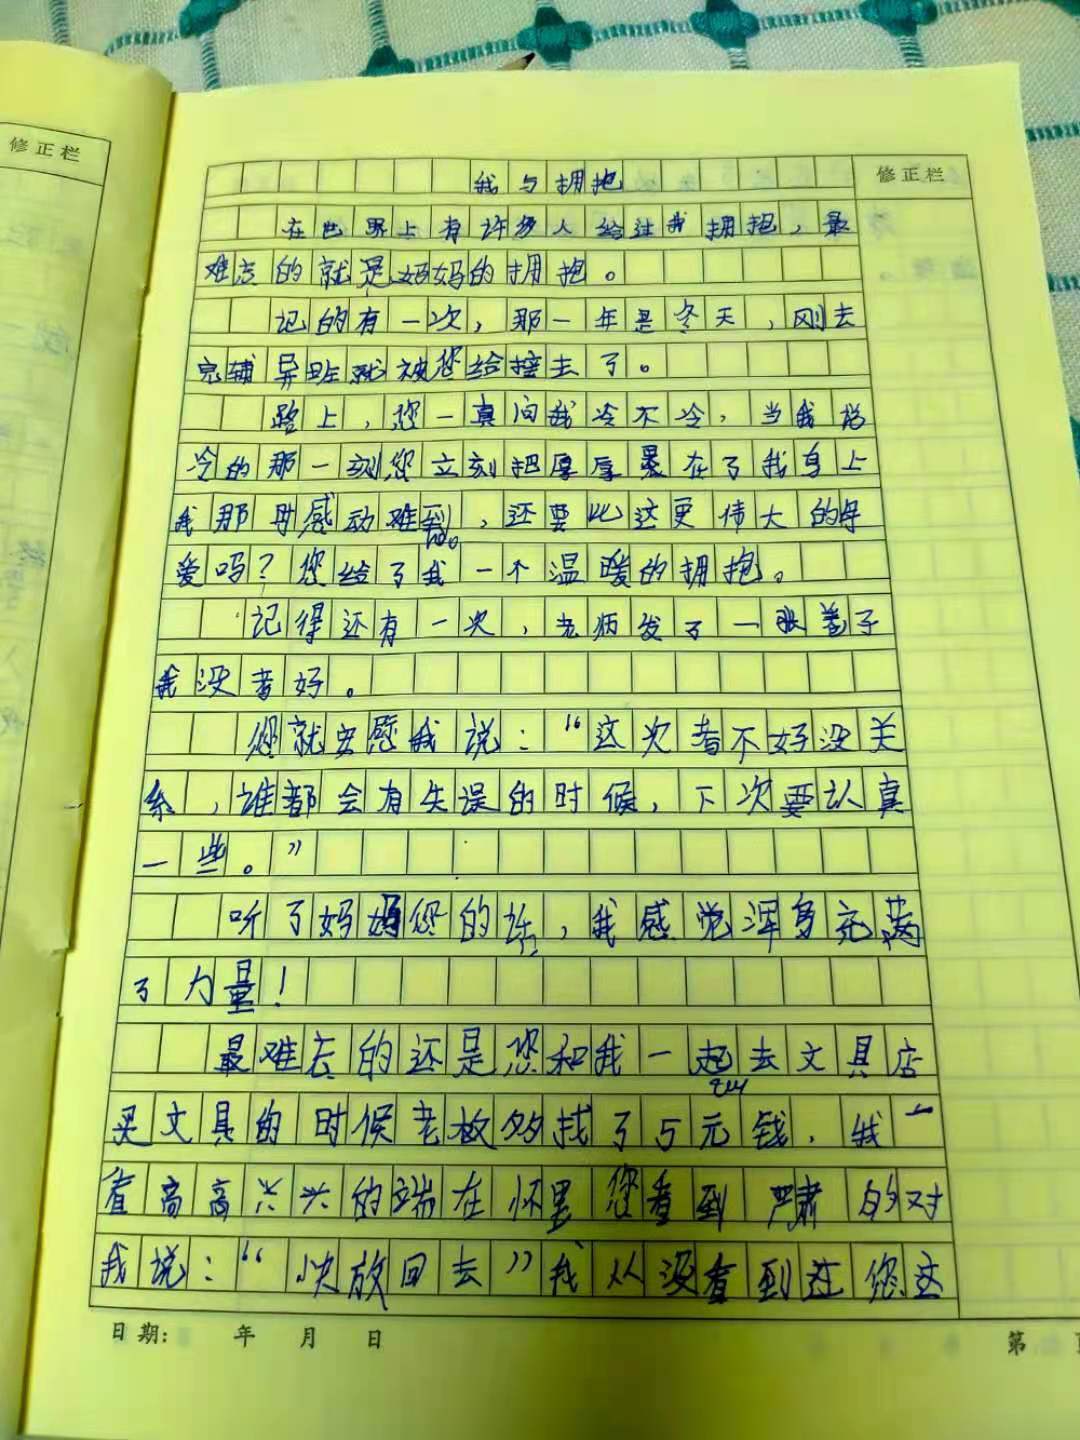 修正栏
修正栏
我与拥抱
在世界上有许多人给过我拥抱，最
难忘的就是妈妈的拥抱。
记的有一次，那一年是冬天，刚去
完辅导班就被您给接去了。
路上，您一真问我冷不冷，当我说
冷的那一刻您立刻把厚厚裹在了我身上
我那时感动难到，还要比这更伟大的母
爱吗？您给了我一个温暖的拥抱。
记得还有一次，老师发了一张卷子
我没考好。
您就安慰我说：“这次考不好没关
系，谁都会有失误的时候，下次要认真
一些。”
听了妈妈您的话，我感觉浑身充满
了力量！
最难忘的还是您和我一起去文具店
买文具的时候老板多找了5元钱，我一
看高高兴兴的踹在怀里您看到严肃的对
我说：“快放回去”我从没看到过您这
日期： 年 月 日
第